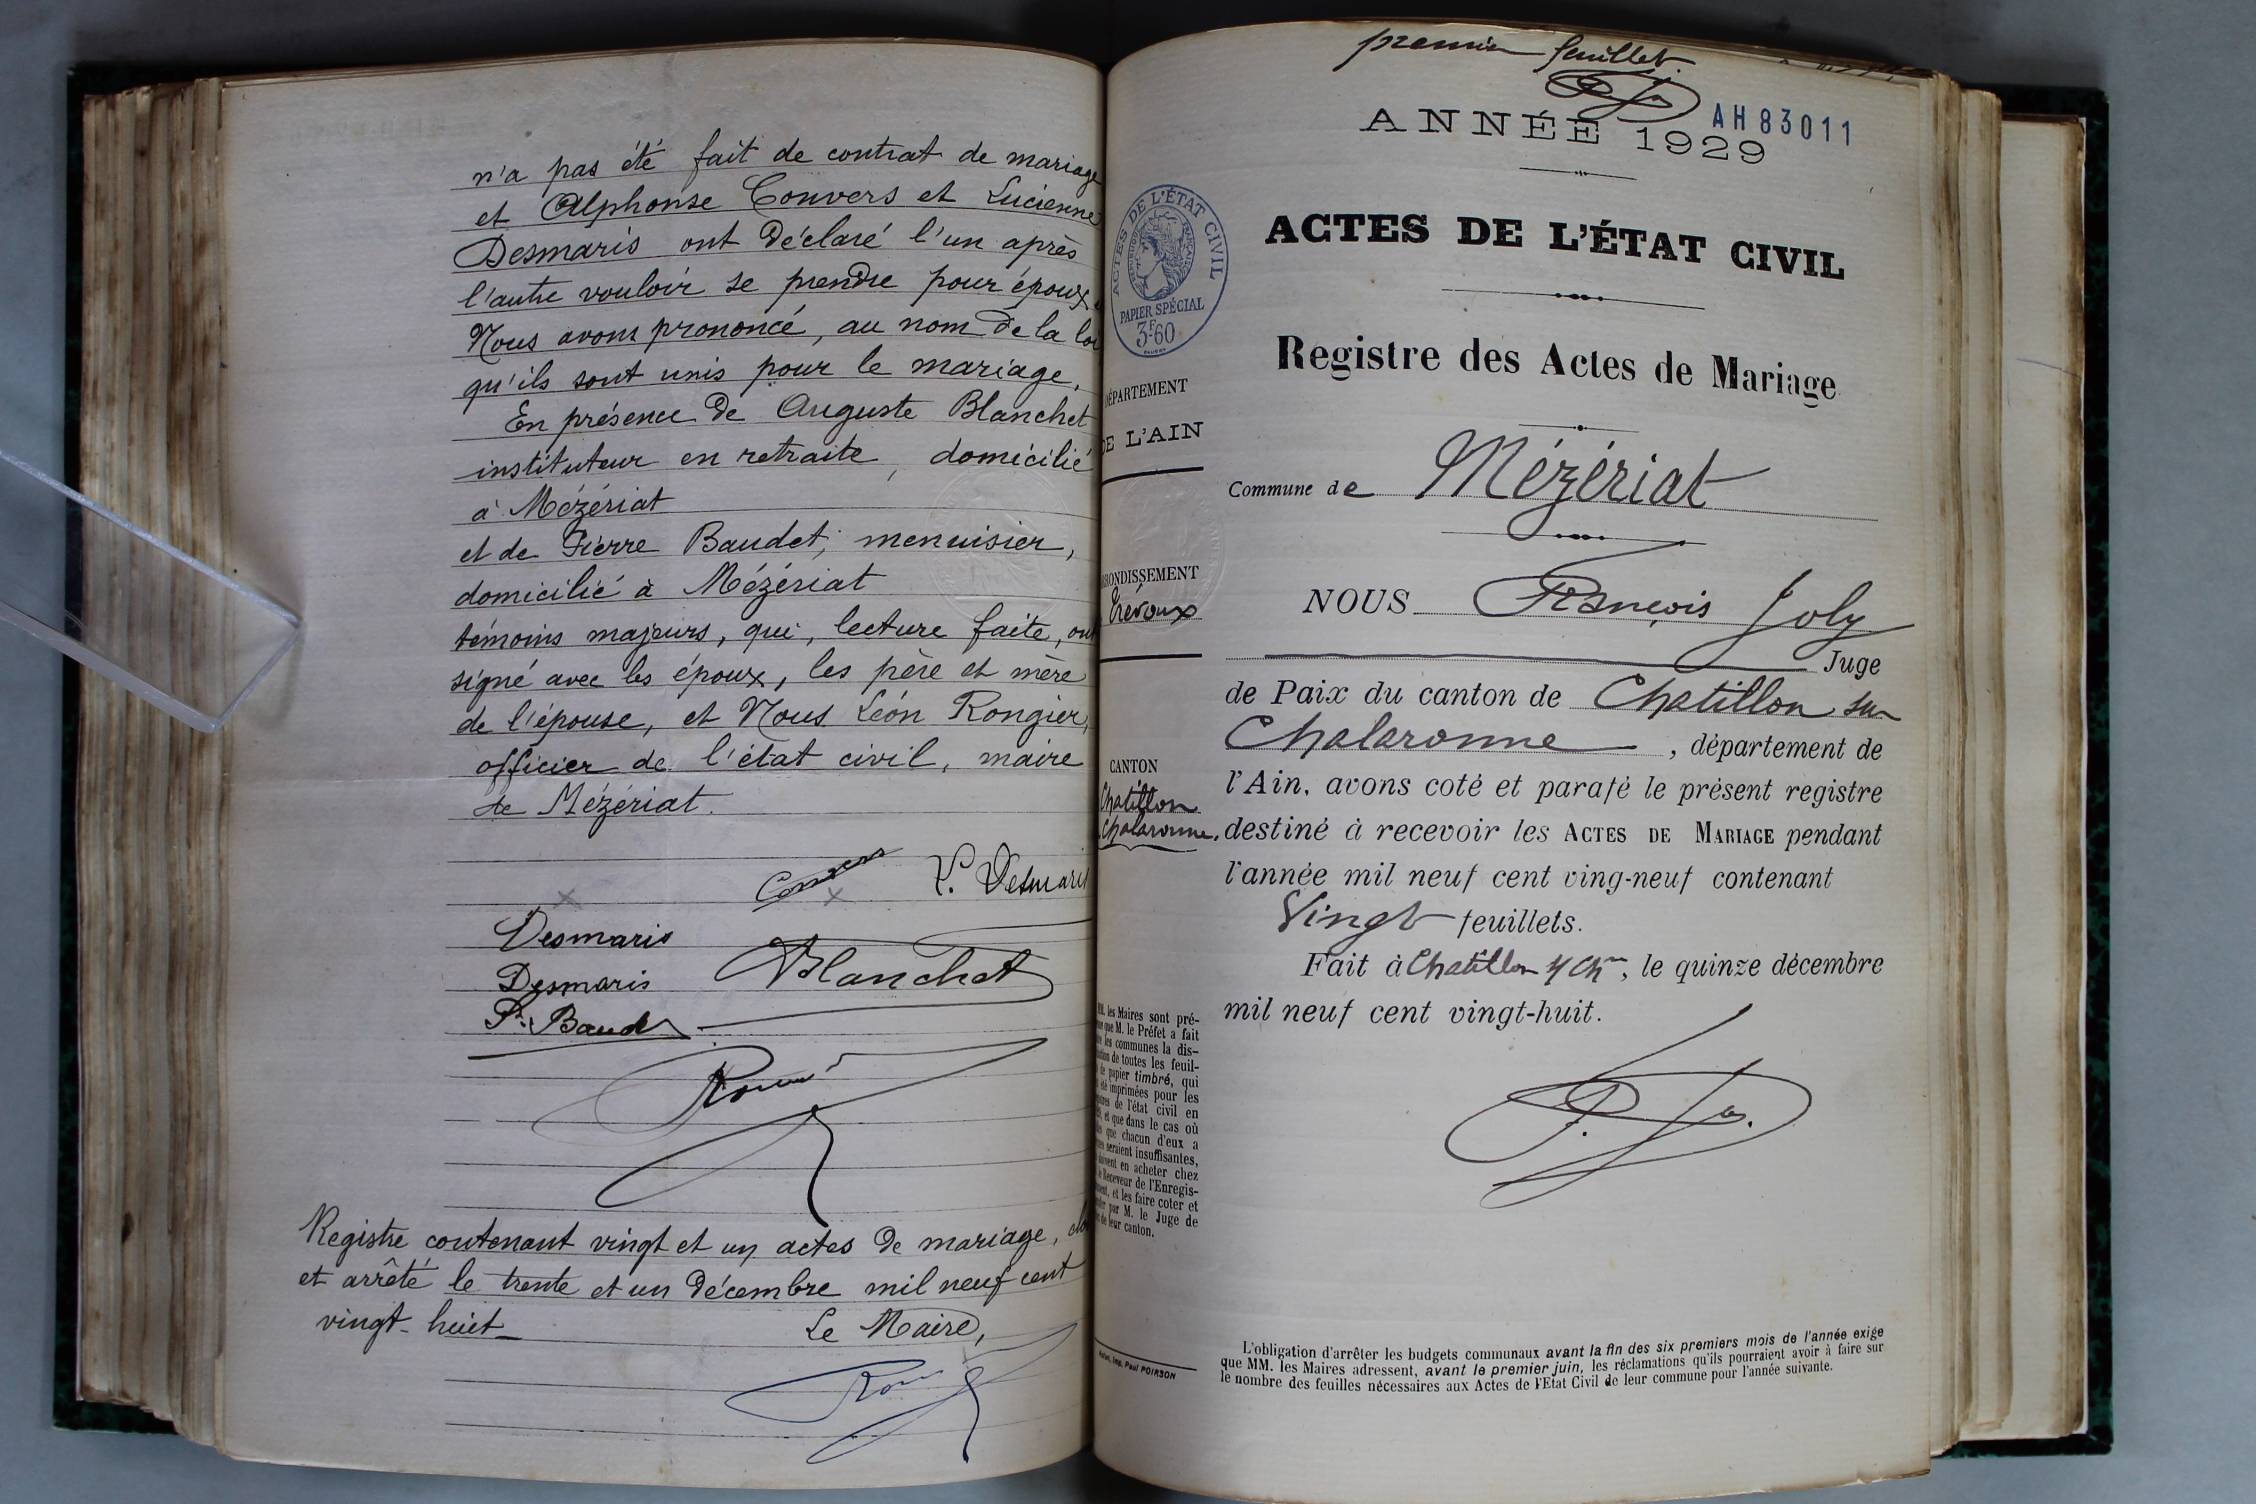 n'a pas été fait de contrat de mariage
et Alphonse Convers et Lucienne
Desmaris ont déclaré l'un après
l'autre vouloir se prendre pour époux
Nous avons prononcé, au nom de la loi
qu'ils sont unis pour le mariage.
En présence de Auguste Blanchet
instituteur en retraite, domicilié
à Mézériat
et de Pierre Baudet, menuisier,
domicilié à Mézériat
témoins majeurs, qui, lecture faite, ont
signé avec les époux, les père et mère
de l'épouse, et Nous Léon Rongier,
officier de l'état civil, maire
de Mézériat.
Convers L. Desmaris
Desmaris
Desmaris Blanchet
Registre contenant vingt et un actes de mariage,
et arrêté le trente et un décembre mil neuf cent
vingt-huit
Le Maire,
premier feuillet.
AH 83011
ANNÉE 1929
ACTES DE L'ÉTAT CIVIL
RÉPUBLIQUE FRANÇAISE
PAPIER SPÉCIAL
3F60
ACTES DE L'ÉTAT CIVIL
Registre des Actes de Mariage
DÉPARTEMENT
DE L'AIN
Commune de Mézériat
RONDISSEMENT
Trévoux
NOUS François Joly
Juge
de Paix du canton de Chatillon sur
Chalaronne, département de
CANTON
Chatillon
Chalaronne.
l'Ain, avons coté et parafé le présent registre
destiné à recevoir les ACTES DE MARIAGE pendant
l'année mil neuf cent ving-neuf contenant
Vingt feuillets.
Fait à Chatillon s/ Chne, le quinze décembre
mil neuf cent vingt-huit.
MM. les Maires sont pré-
que M. le Préfet a fait
les communes la dis-
de toutes les feuil-
de papier timbré, qui
été imprimées pour les
de l'état civil en
et que dans le cas où
que chacun d'eux a
seraient insuffisantes,
en acheter chez
le Receveur de l'Enregis-
et les faire coter et
par M. le Juge de
de leur canton.
Imp. Paul POIRSON
L'obligation d'arrêter les budgets communaux avant la fin des six premiers mois de l'année exige
que MM. les Maires adressent, avant le premier juin, les réclamations qu'ils pourraient avoir à faire sur
le nombre des feuilles nécessaires aux Actes de l'Etat Civil de leur commune pour l'année suivante.